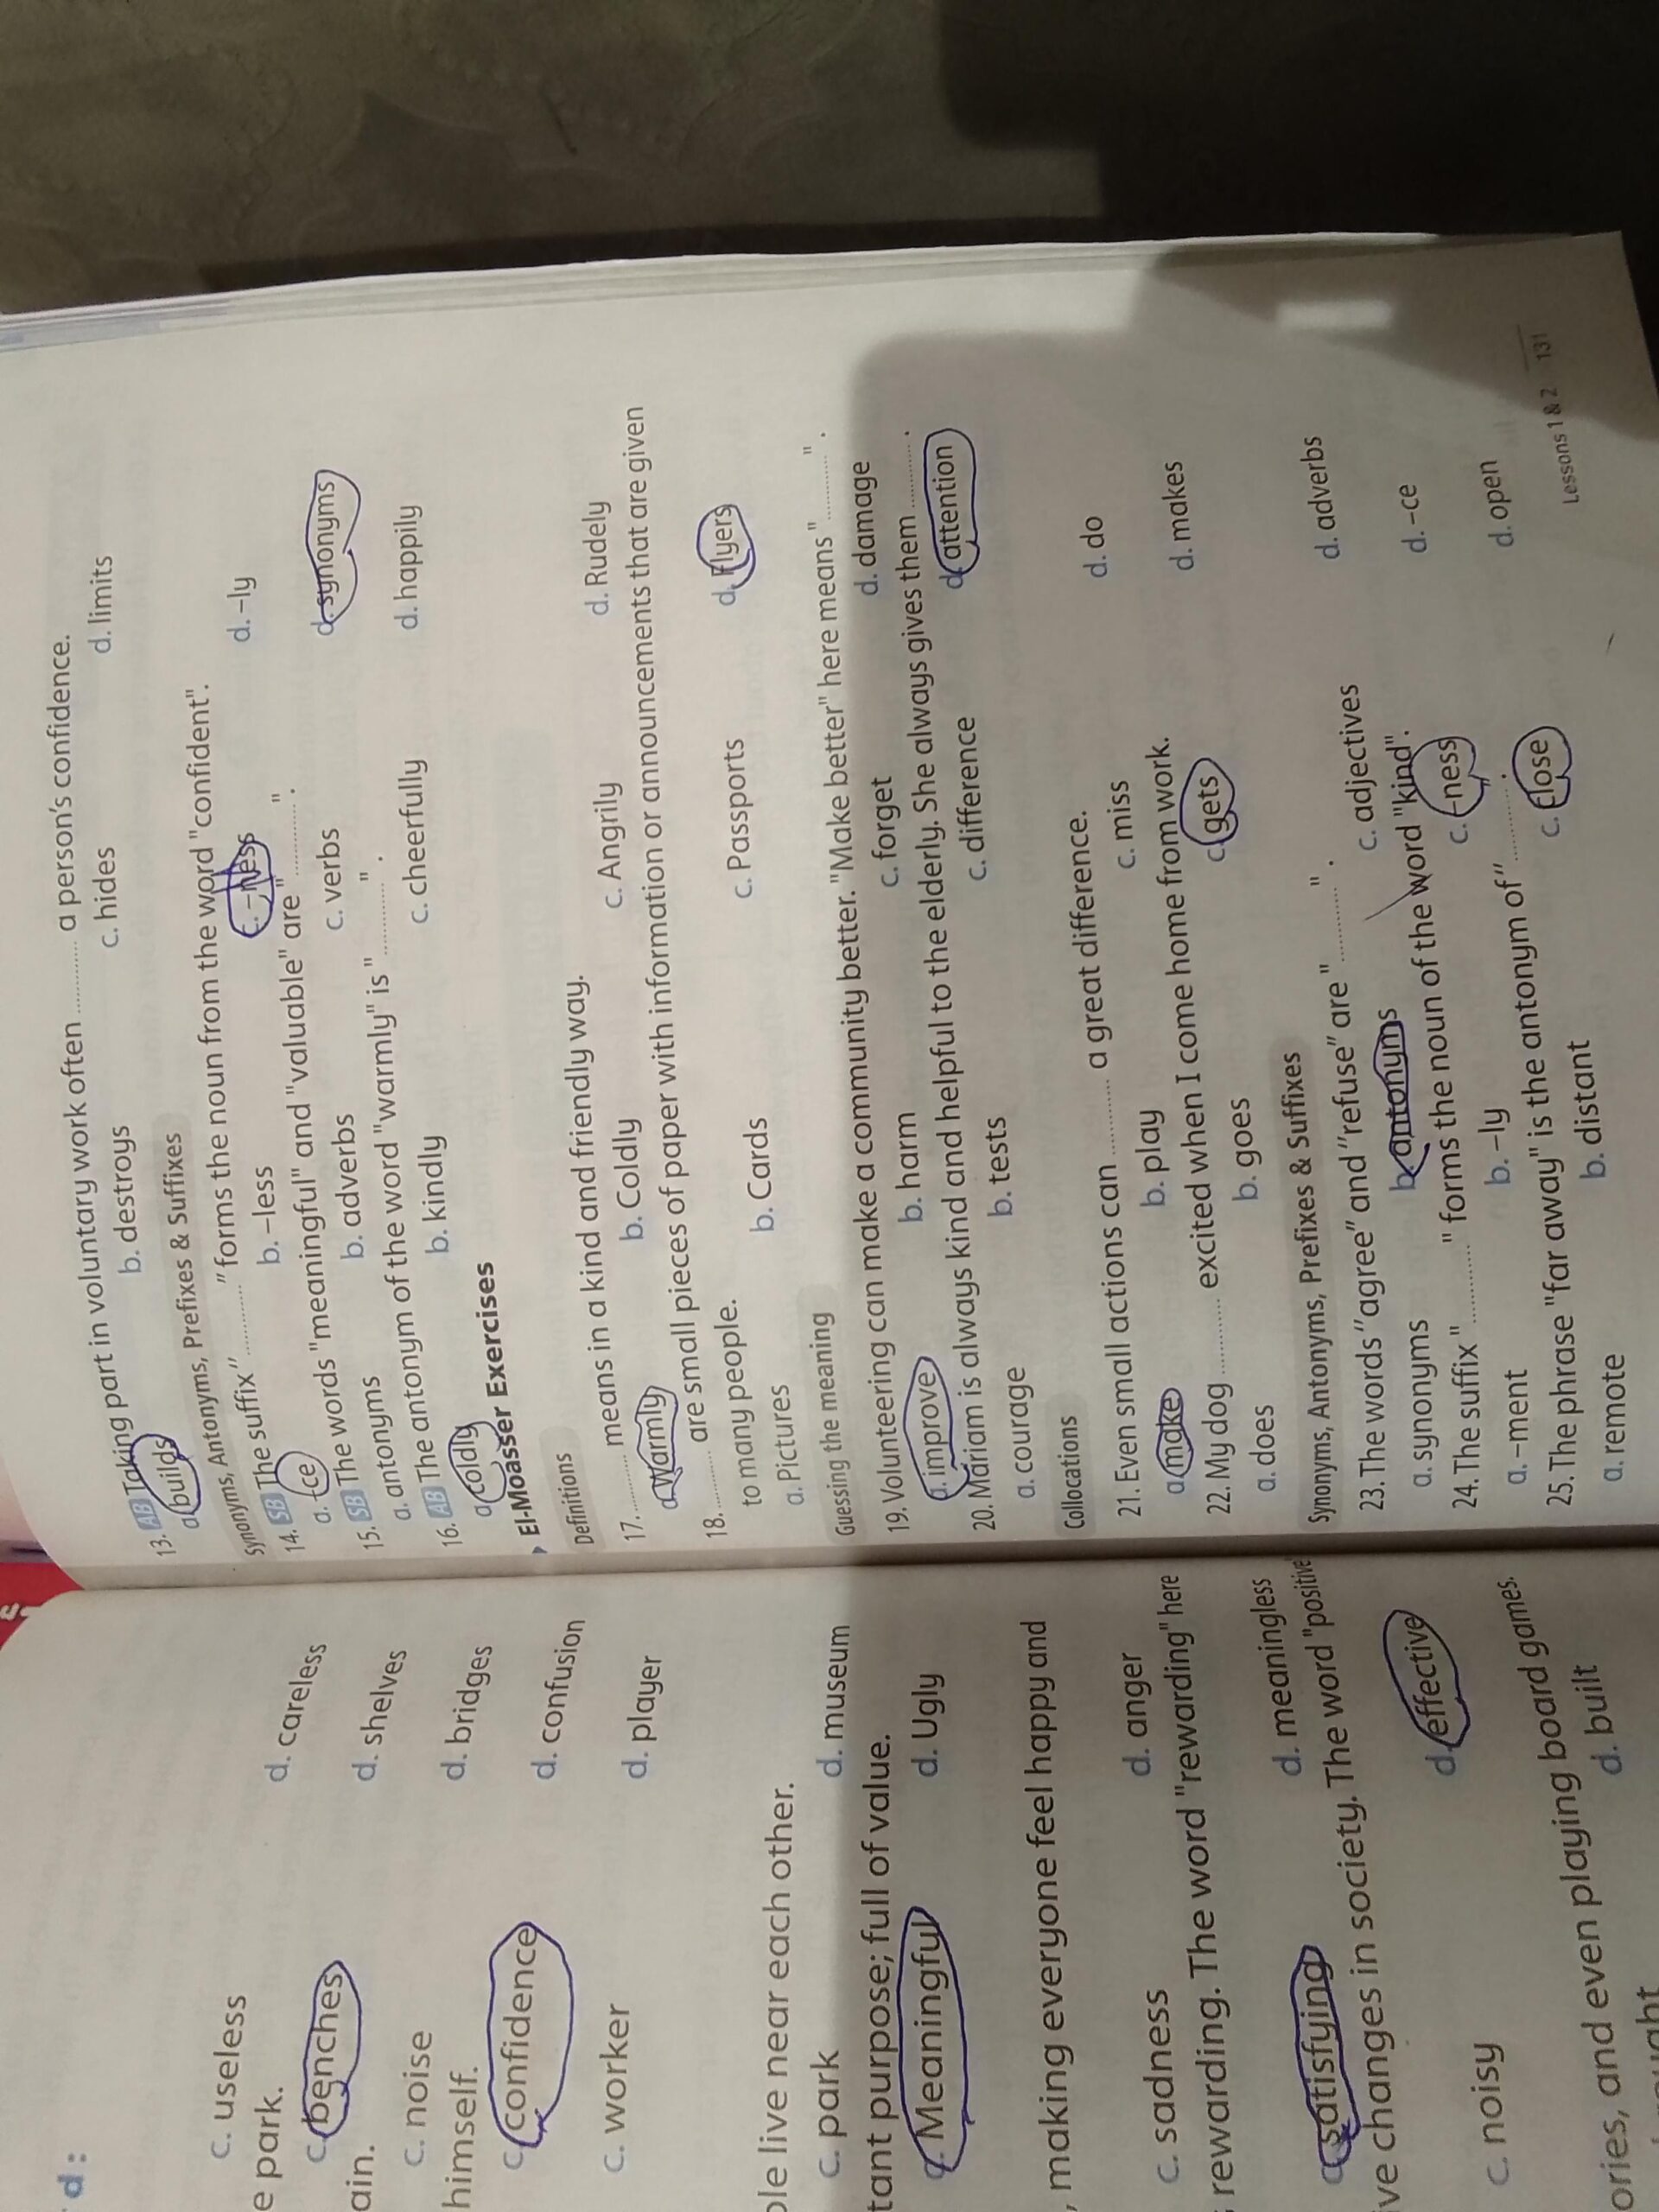 d :
c. useless d. careless
e park.
c. benches d. shelves
ain.
c. noise d. bridges
himself.
c. confidence d. confusion
c. worker d. player
ple live near each other.
c. park d. museum
tant purpose; full of value.
c. Meaningful d. Ugly
, making everyone feel happy and
c. sadness d. anger
rewarding. The word "rewarding" here
c. satisfying d. meaningless
ve changes in society. The word "positive
c. noisy d. effective
ories, and even playing board games.
d. built
13. AB Taking part in voluntary work often .......... a person's confidence.
a. builds b. destroys c. hides d. limits
Synonyms, Antonyms, Prefixes & Suffixes
14. SB The suffix" .......... "forms the noun from the word "confident".
a. -ce b. -less c. -ness d. -ly
15. SB The words "meaningful" and "valuable" are" .......... ".
a. antonyms b. adverbs c. verbs d. synonyms
16. AB The antonym of the word "warmly" is " .......... ".
a. coldly b. kindly c. cheerfully d. happily
El-Moasser Exercises
Definitions
17. .......... means in a kind and friendly way.
a. Warmly b. Coldly c. Angrily d. Rudely
18. .......... are small pieces of paper with information or announcements that are given
to many people.
a. Pictures b. Cards c. Passports d. Flyers
Guessing the meaning
19. Volunteering can make a community better. "Make better" here means " .......... ".
a. improve b. harm c. forget d. damage
20. Mariam is always kind and helpful to the elderly. She always gives them .......... .
a. courage b. tests c. difference d. attention
Collocations
21. Even small actions can .......... a great difference.
a. make b. play c. miss d. do
22. My dog .......... excited when I come home from work.
a. does b. goes c. gets d. makes
Synonyms, Antonyms, Prefixes & Suffixes
23. The words "agree" and "refuse" are " .......... ".
a. synonyms b. antonyms c. adjectives d. adverbs
24. The suffix " .......... " forms the noun of the word "kind".
a. -ment b. -ly c. -ness d. -ce
25. The phrase "far away" is the antonym of" .......... .
a. remote b. distant c. close d. open
Lessons 1 & 2 131